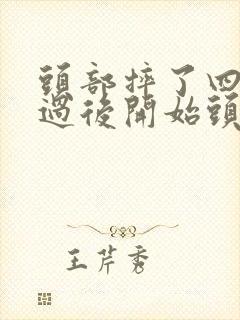 頭部摔了四
過後開始頭
王芹秀